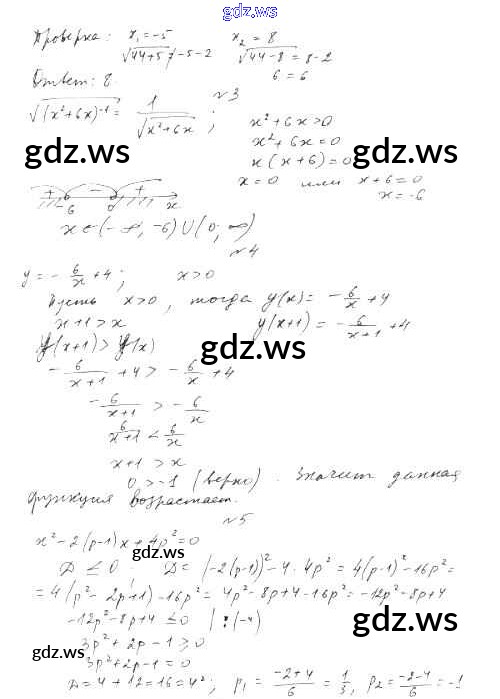 gdz.ws
Проверка: x₁ = -5    x₂ = 8
√(44+5) ≠ -5-2    √(44-8) = 8-2
Ответ: 8.    6 = 6
№3
√((x²+6x)⁻¹) = 1/√(x²+6x) ;    x²+6x>0
x²+6x=0
gdz.ws    gdz.ws
x(x+6)=0
x=0 или x+6=0
x=-6
+ - +
-6 0 x
x ∈ (-∞, -6) ∪ (0; ∞)
№4
y = -6/x + 4 ;    x>0
Пусть x>0, тогда y(x) = -6/x + 4
x+1 > x    y(x+1) = -6/(x+1) + 4
y(x+1) > y(x)
gdz.ws
-6/(x+1) + 4 > -6/x + 4
-6/(x+1) > -6/x
6/(x+1) < 6/x
x+1 > x
0 > -1 (верно). Значит данная
функция возрастает.
№5
x² - 2(p-1)x + 4p² = 0
gdz.ws
D ≤ 0    D = (-2(p-1))² - 4·4p² = 4(p-1)² - 16p² =
= 4(p² - 2p+1) - 16p² = 4p² - 8p+4 - 16p² = -12p² - 8p+4
-12p² - 8p+4 ≤ 0 | :(-4)
gdz.ws
3p² + 2p - 1 ≥ 0
gdz.ws
3p² + 2p - 1 = 0
D = 4 + 12 = 16 = 4² ; p₁ = (-2+4)/6 = 1/3, p₂ = (-2-4)/6 = -1